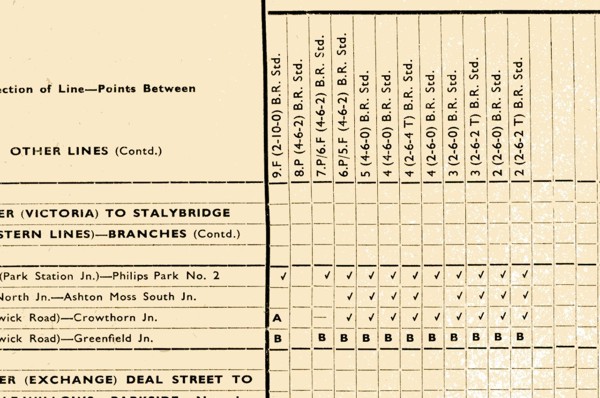 9.F (2-10-0) B.R. Std.
8.P (4-6-2) B.R. Std.
7.P/6.F (4-6-2) B.R. Std.
6.P/5.F (4-6-2) B.R. Std.
5 (4-6-0) B.R. Std.
4 (4-6-0) B.R. Std.
4 (2-6-4 T) B.R. Std.
4 (2-6-0) B.R. Std.
3 (2-6-0) B.R. Std.
3 (2-6-2 T) B.R. Std.
2 (2-6-0) B.R. Std.
2 (2-6-2 T) B.R. Std.
ction of Line—Points Between
OTHER LINES (Contd.)
ER (VICTORIA) TO STALYBRIDGE
STERN LINES)—BRANCHES (Contd.)
(Park Station Jn.)—Philips Park No. 2 ✓ ✓ ✓ ✓ ✓ ✓ ✓ ✓ ✓ ✓ ✓
North Jn.—Ashton Moss South Jn. ✓ ✓ ✓ ✓ ✓ ✓ ✓ ✓
wick Road)—Crowthorn Jn. A — ✓ ✓ ✓ ✓ ✓ ✓ ✓ ✓ ✓
wick Road)—Greenfield Jn. B B B B B B B B B B B
ER (EXCHANGE) DEAL STREET TO